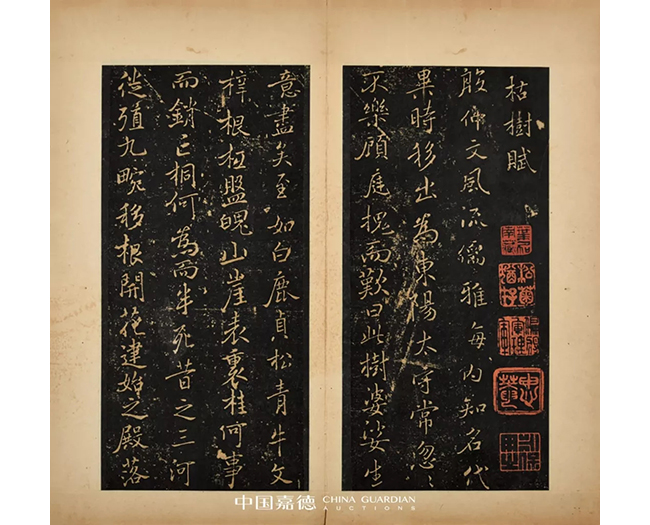 枯樹賦
殷仲文風流儒雅海内知名代
異時移出為東陽太守常忽〻
不樂顧庭槐而歎曰此樹婆娑生
意盡矣至如白鹿貞松青牛文
梓根柢盤魄山崖表裏桂何事
而銷亡桐何為而半死昔之三河
徙殖九畹移根開花建始之殿落
中国嘉德 CHINA GUARDIAN
AUCTIONS